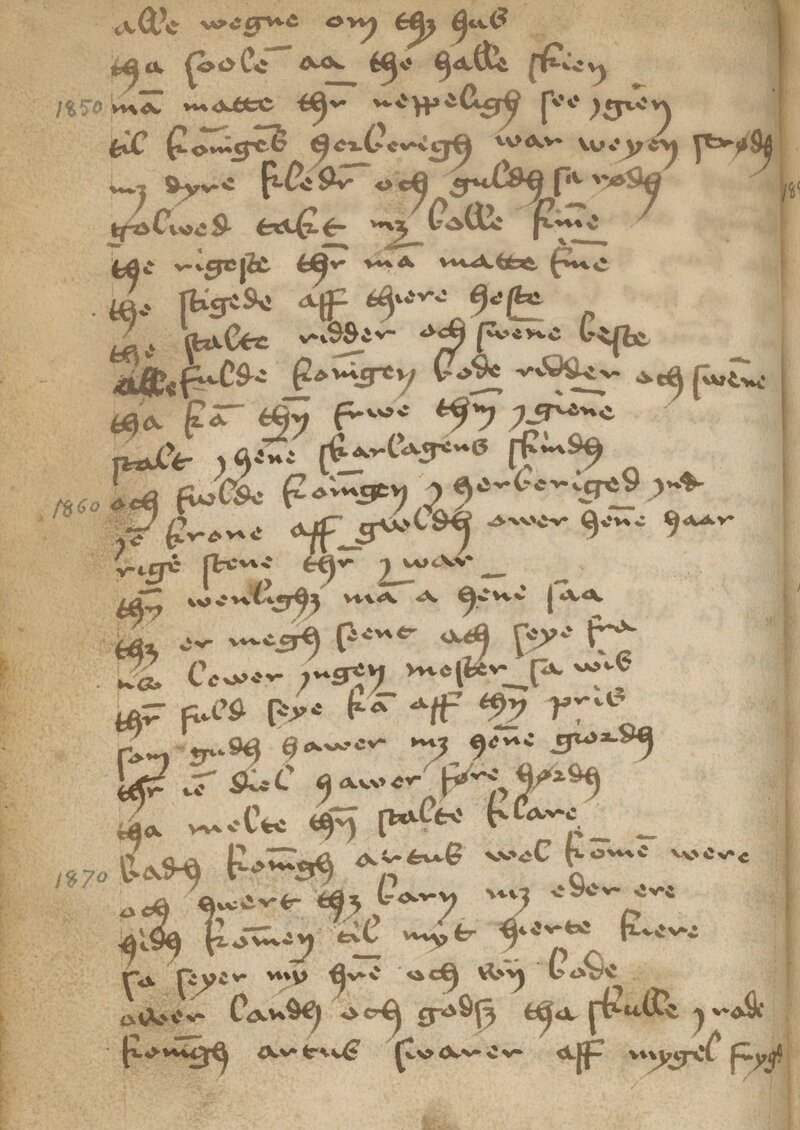 alle wegne om thꝫ hus
tha soolē aa the halle skien
1850 mā matte thr̄ neppeligh see ȷgien
til kōnīgēs herberigh war weyen strødh
mꝫ dyre kledr̄ och guldh sa rødh
golwed takt mꝫ bolle kīne
the rigeste thr̄ mā matte fīnē
the stigede aff thiere heste
the stalte ridder och swēne beste
alle fulde konīgen bode ridder och swēne
tha kā thn̄ frwe thm̄ ȷgiēne
stalt ȷ hēne skarlagens skindh
1860 och fwlde konīgen ȷ herberiged ȷnd
ȷē krone aff gwldh ower hēne haar
rige stene thr̄ ȷ war
thn̄ wenlighꝫ mā a hēne saa
thꝫ er megh seent ach seye fra
nw lewer ȷngen mester sa wis
thr̄ fuld seye kā aff thn̄ pris
som gudh hawer mꝫ hēne giordh
thr̄ iē diel hawer føre hørdh
tha melte thn̄ stalte klare
1870 badh konīgh artus wel kōmē were
och hwert thꝫ barn mꝫ eder ere
hidh kōmen til myt hierte kiere
sa seyer mȳ hr̄e och wÿ bode
ower landh och godß tha skulle ȷ rade
konīgh artus swarer aff mygel frygd